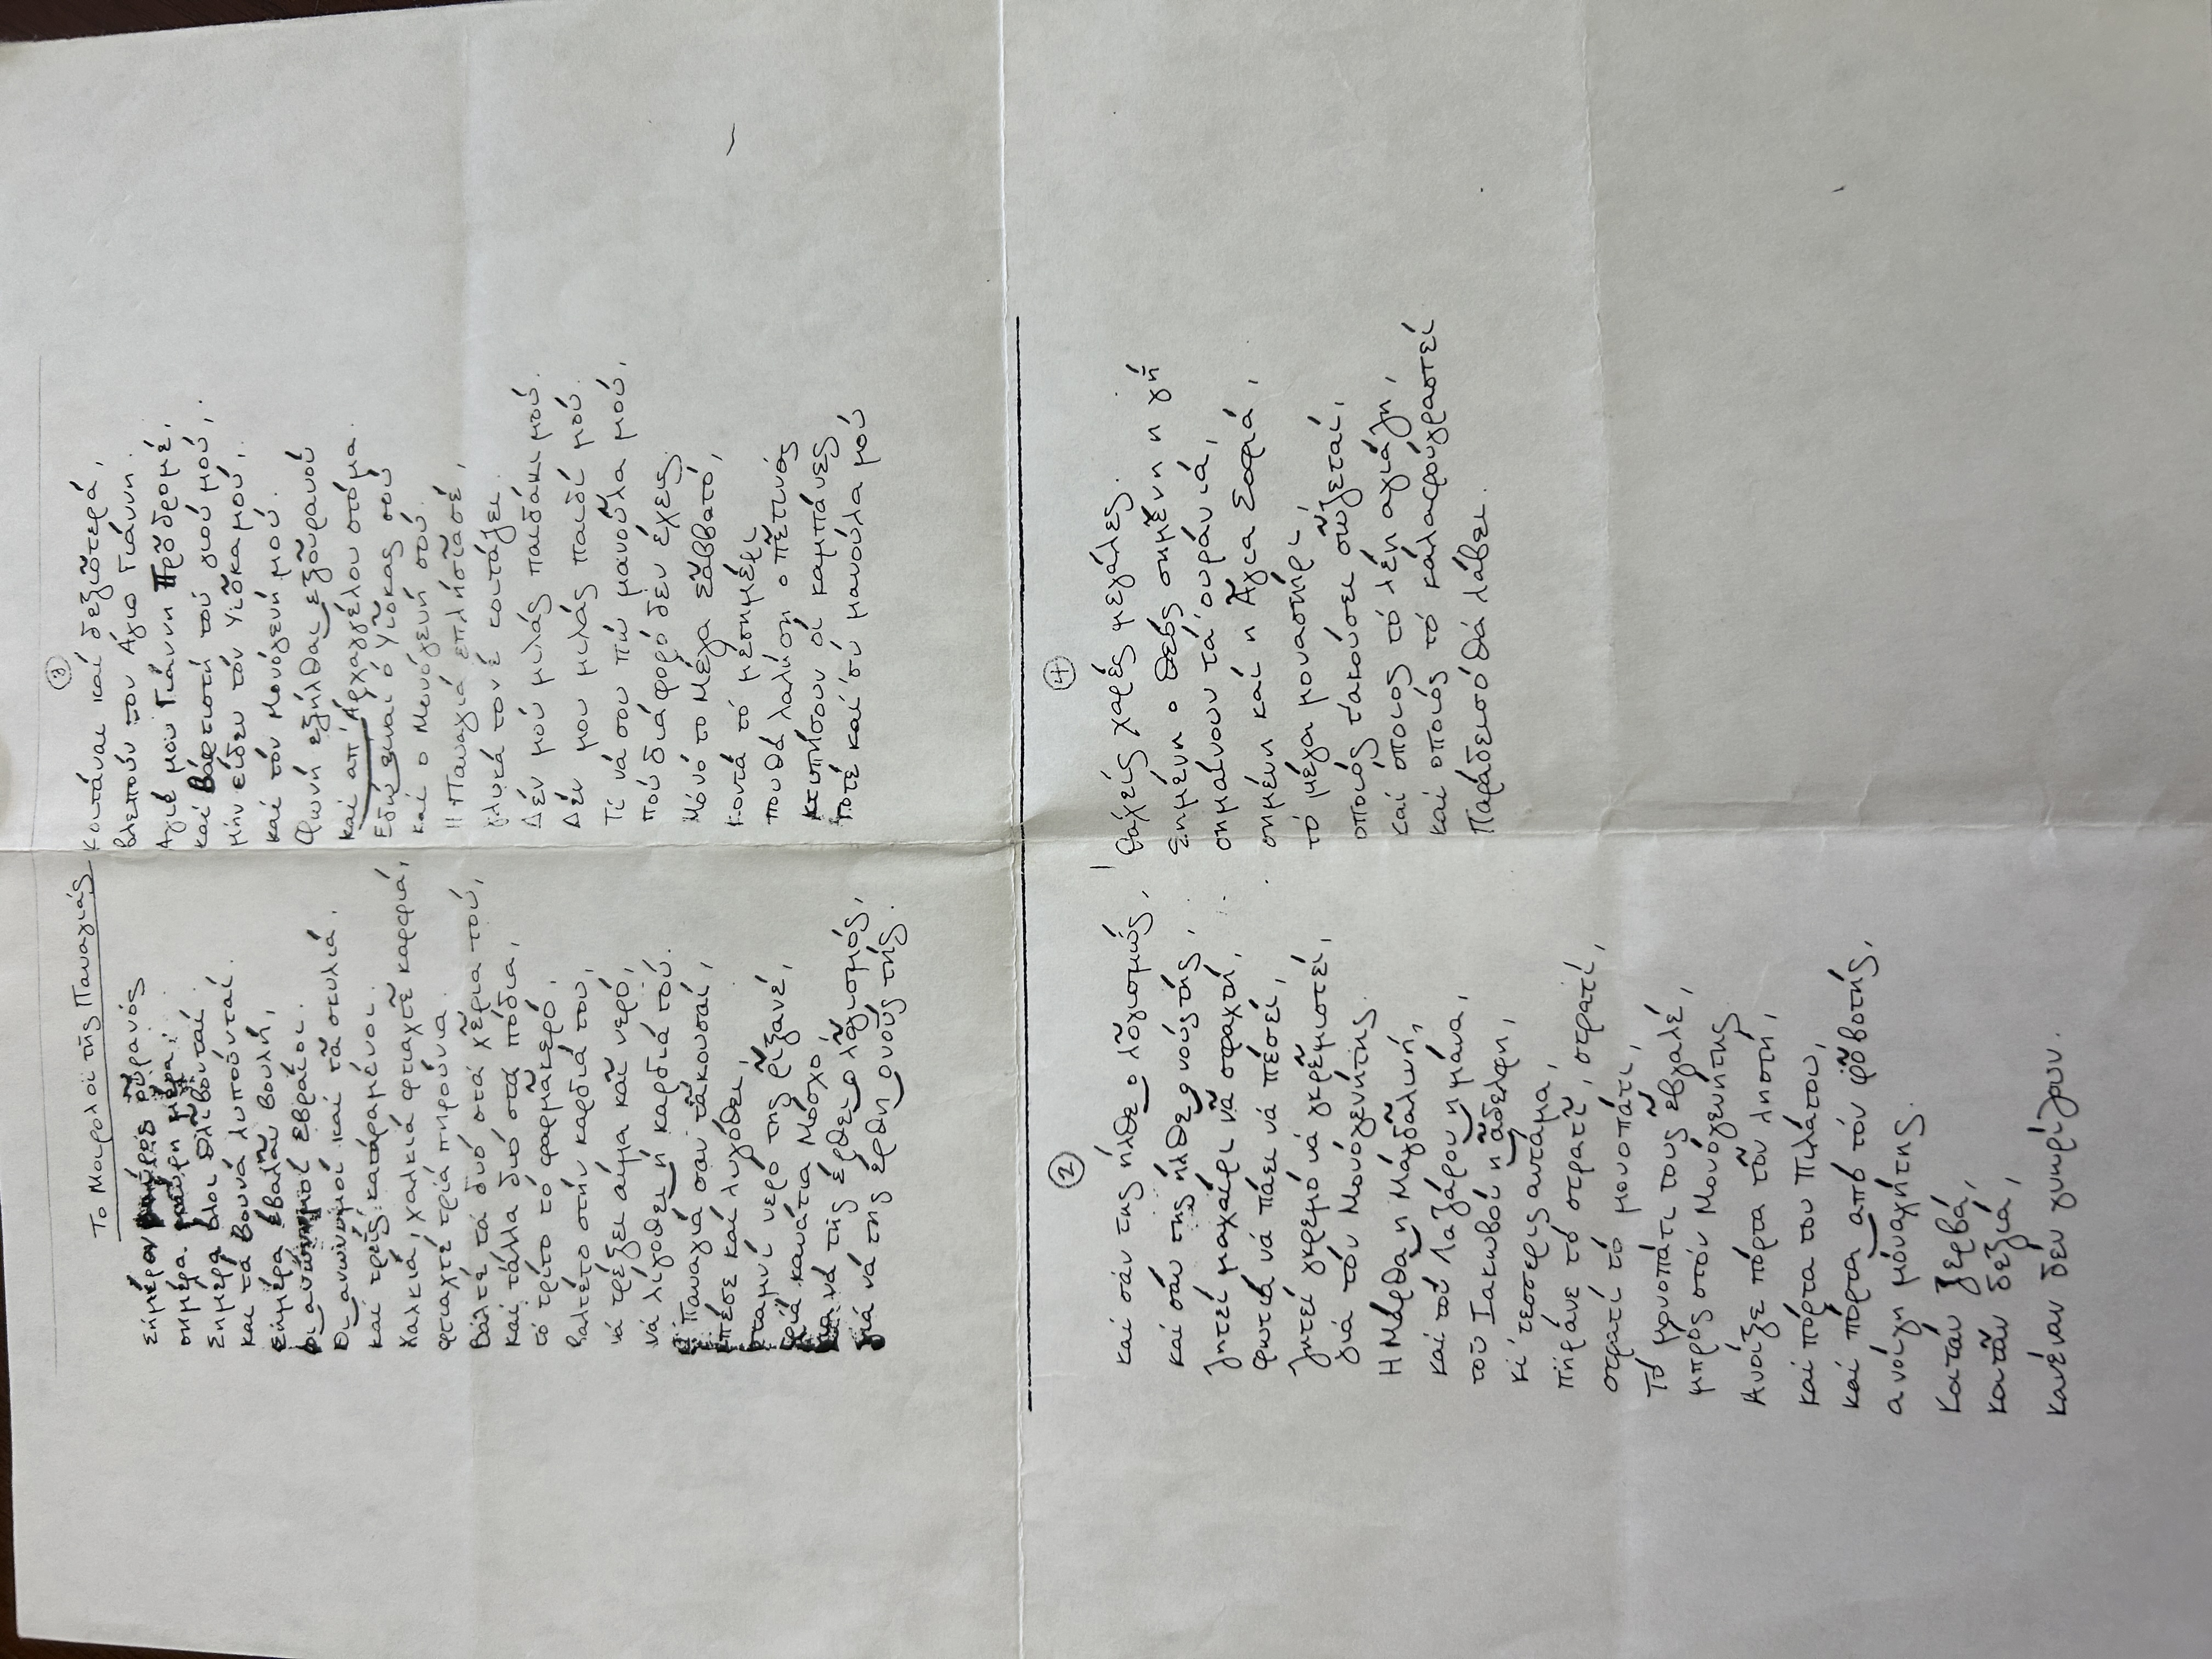 Το Μοιρολοϊ τής Παναγιάς
Σήμέρον μαύρος ούρανός
σημέρα μαύρη μέρα,
Σημερα όλοι θλίβουνταί
και τα βουνά λυπούνταί.
Σήμμέρα έβαλαν βουλή,
Οι ανώνυμοί εβραίοι.
Οι ανωνυμοί καί τα σκυλιά.
και τρείς καταραμένοι.
Χαλκιά, χαλκιά φτιαχτέ καρφιά,
φτιαχτέ τριά πηρούνια.
Βάλτέ τά δυό στά χέρια τού,
Και τάλλα δυό στά πόδια,
τό τρίτο τό φαρμακερό,
βαλτέτο στήν καρδιά του,
νά τρέξει αίμα καί νερό,
νά λίγοθει ή καρδιά τού.
Η Παναγιά σαν τάκουσαί,
επέσε καί λιγόθει,
σταμνί νερό της ρίξανέ,
τριά κανάτια Μόσχο
για νά τής έρθει ο λόγισμός,
γιά νά της έρθη ο νούς τής.
②
και σάν της ήλθε ο λόγισμώς,
και σάν της ήλθε ο νούς τής,
ζητεί μαχαίρι νά σφαχτή,
φωτιά νά πάει νά πέσεί,
ζητεί γκρεμό νά γκρέμιστεί,
γιά τόν Μονόγενήτης.
Η Μάρθα η Μάγδαλωνή,
και τού Λαζάρου η μάνα,
τού Ιακωβού η άδελφη,
κι' τεσσερις αντάμα,
πήράνε τό στρατί, στρατί,
στρατί τό μονοπάτι,
Τό μονοπάτι τους έβγαλέ,
μπρος στόν Μονόγενήτης
Ανοίξε πόρτα τού ληστή,
και πόρτα του Πιλάτου,
και πόρτα από τόν φόβοτής,
ανοίχη μόναχήτης.
Κοιτάν ζερβά,
κοιτάν δεξιά,
κανέναν δέν γνωρίζουν.
③
Κοιτάναι καί δεξιότερά,
βλεπούν τον Άγιο Γιάννη.
Αγιέ μου Γιάννη Πρόδρομέ,
και βάφτιστή τού γιού μού,
μήν είδεν τόν Υιόκα μού,
και τόν Μονόγενή μού.
Φωνή εξήλθαι εξ ούρανού
και απ' Αρχαγγέλου στόμα.
Εδώ ειναι ό Υιόκας σού
και ο Μονόγενή σού.
Η Παναγιά επλησίασέ,
γλυκά τον έ κοιτάζει.
Δέν μού μιλάς παιδάκι μού.
Δέν μου μιλάς παιδί μού.
Τί νά σου πώ μανούλα μού,
πού διάφορό δεν έχεις.
Μόνό το Μέγα Σάββατό,
κοντά τό μέσημμέρι,
που θά λαλήση ο πέτινός
κτιπήσουν οί καμπάνες
τοτέ και σύ μανούλα μού
④
θάχεις χαρές μεγάλες.
Σημένη ο θεός σημένη η γή
σημαίνουν τά ουράνιά,
σημένη και η Άγια Σοφιά,
τό μέγα μοναστήρι,
οποιός τακούσει σώζεται,
και οποιος τό λέη αγιάζη,
και οποιός τό κάλαφρουγραστεί
Παράδεισό θά λάβει.